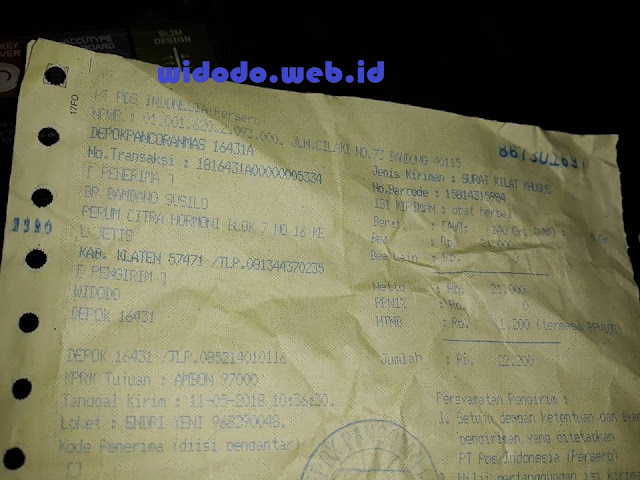 KEY
ACCUTYPE
SLIM
DESIGN
widodo.web.id
17FO
PT POS INDONESIA(Persero)
NPWP : 01.001.620.2.093.000, JLN.CILAKI NO.73 BANDUNG 40115
DEPOKPANCORANMAS 16431A
No.Transaksi : 1816431A00000005334
[ PENERIMA ]
BP BAMBANG SUSILO
PERUM CITRA HORMONI BLOK 7 NO 16 KE
L JETIS
KAB. KLATEN 57471 /TLP.081344370235
[ PENGIRIM ]
WIDODO
DEPOK 16431
DEPOK 16431 /TLP.085214010116
KPRK Tujuan : AMBON 97000
Tanggal Kirim : 11-05-2018 10:36:30.
Loket : ENDRI YENI 968290048.
Kode Penerima (diisi pengantar)
[]
Jenis Kiriman : SURAT KILAT KHUSUS
No.Barcode : 15814315984
ISI KIRIMAN : obat herbal
Berat : 140 Gr.
Bea : Rp. 21.000
Bea Lain : Rp. 0
Netto : Rp. 21.000
PPN1% : Rp. 0
HTNB : Rp. 1.200 (termasuk PPN10%)
Jumlah : Rp. 22.200
Persyaratan Pengirim :
1. Setuju dengan ketentuan dan
pengiriman yang ditetapkan
PT Pos Indonesia (Persero)
isi kiriman